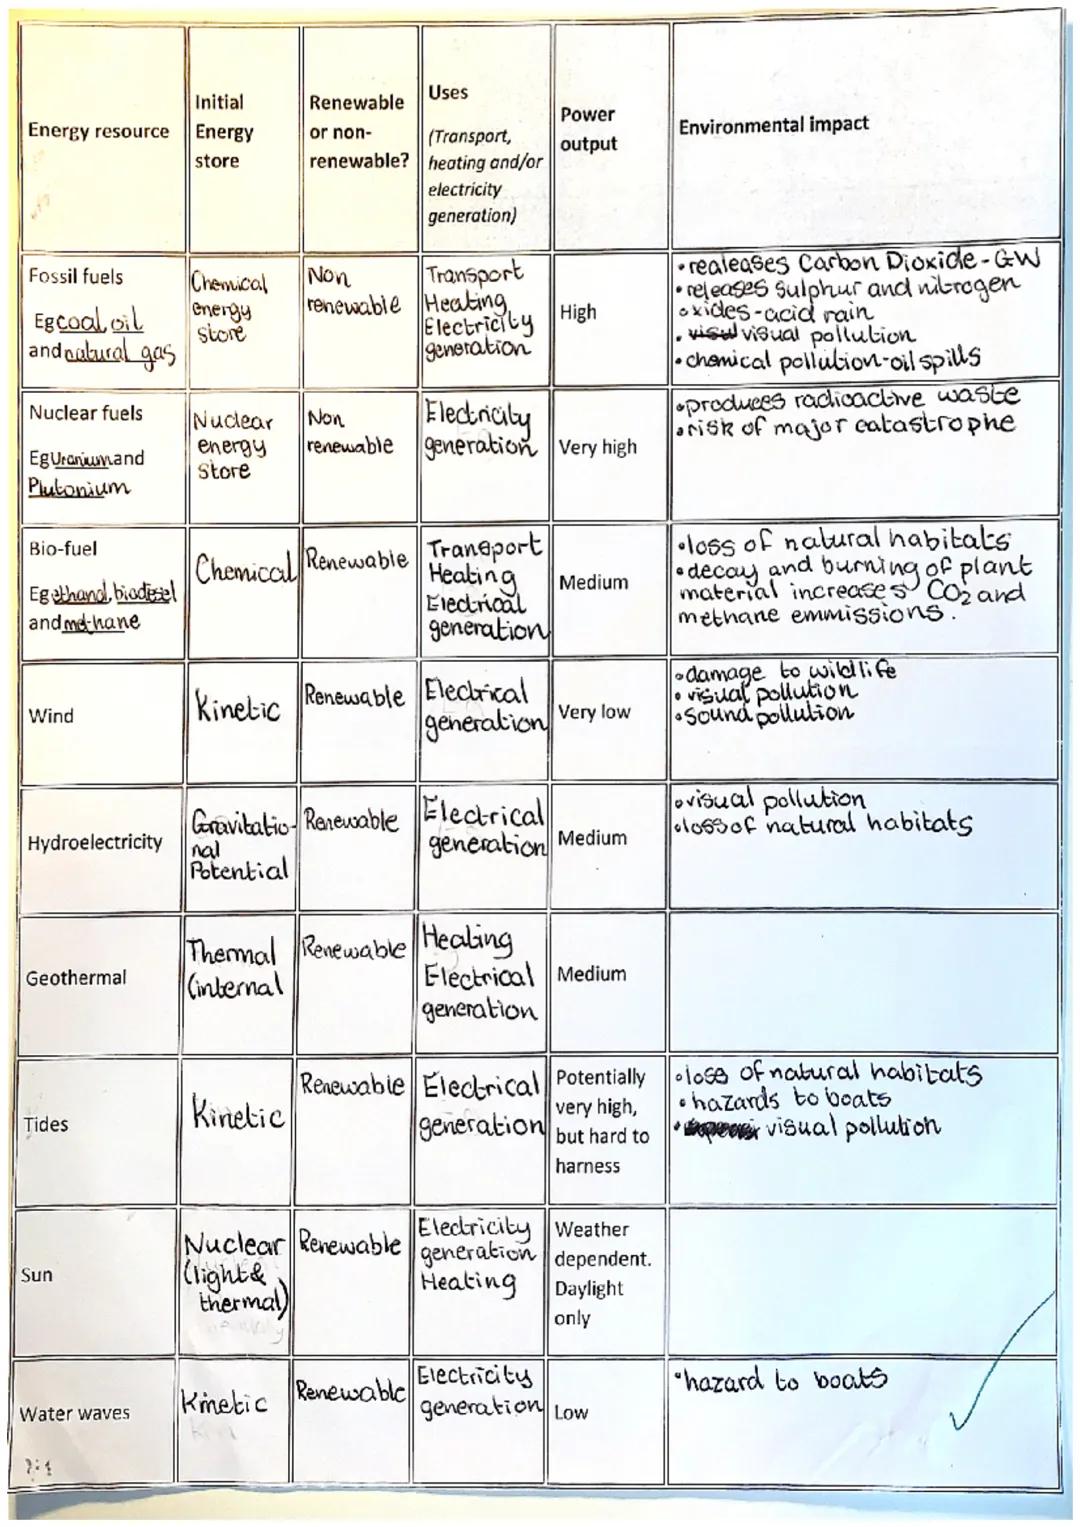 Energy resource
Initial
Energy
store
Renewable
or non-
renewable?
Uses
(Transport,
heating and/or
electricity
generation)
Power
output
Environmental impact
Fossil fuels
Eg coal, oil
and natural gas
Chemical
energy
store
Non
renewable
Transport
Heating
Electricity
generation
High
•realeases Carbon Dioxide-GW
•releases sulphur and nitrogen
oxides-acid rain
• visual pollution
•chemical pollution-oil spills
Nuclear fuels
Eg Uranium and
Plutonium
Nuclear
energy
store
Non
renewable
Electricity
generation
Very high
•produces radioactive waste
•risk of major catastrophe
Bio-fuel
Eg ethanol, biodiesel
and methane
Chemical
Renewable
Transport
Heating
Electrical
generation
Medium
•loss of natural habitats
•decay and burning of plant
material increases CO2 and
methane emmissions.
Wind
Kinetic
Renewable
Electrical
generation
Very low
•damage to wildlife
•visual pollution
•Sound pollution
Hydroelectricity
Gravitatio-
nal
Potential
Renewable
Electrical
generation
Medium
•visual pollution
•loss of natural habitats
Geothermal
Thermal
(internal
Renewable
Heating
Electrical
generation
Medium
Tides
Kinetic
Renewable
Electrical
generation
Potentially
very high,
but hard to
harness
•loss of natural habitats
•hazards to boats
• visual pollution
Sun
Nuclear
(light &
thermal)
Renewable
Electricity
generation
Heating
Weather
dependent.
Daylight
only
Water waves
Kinetic
Renewable
Electricity
generation
Low
•hazard to boats